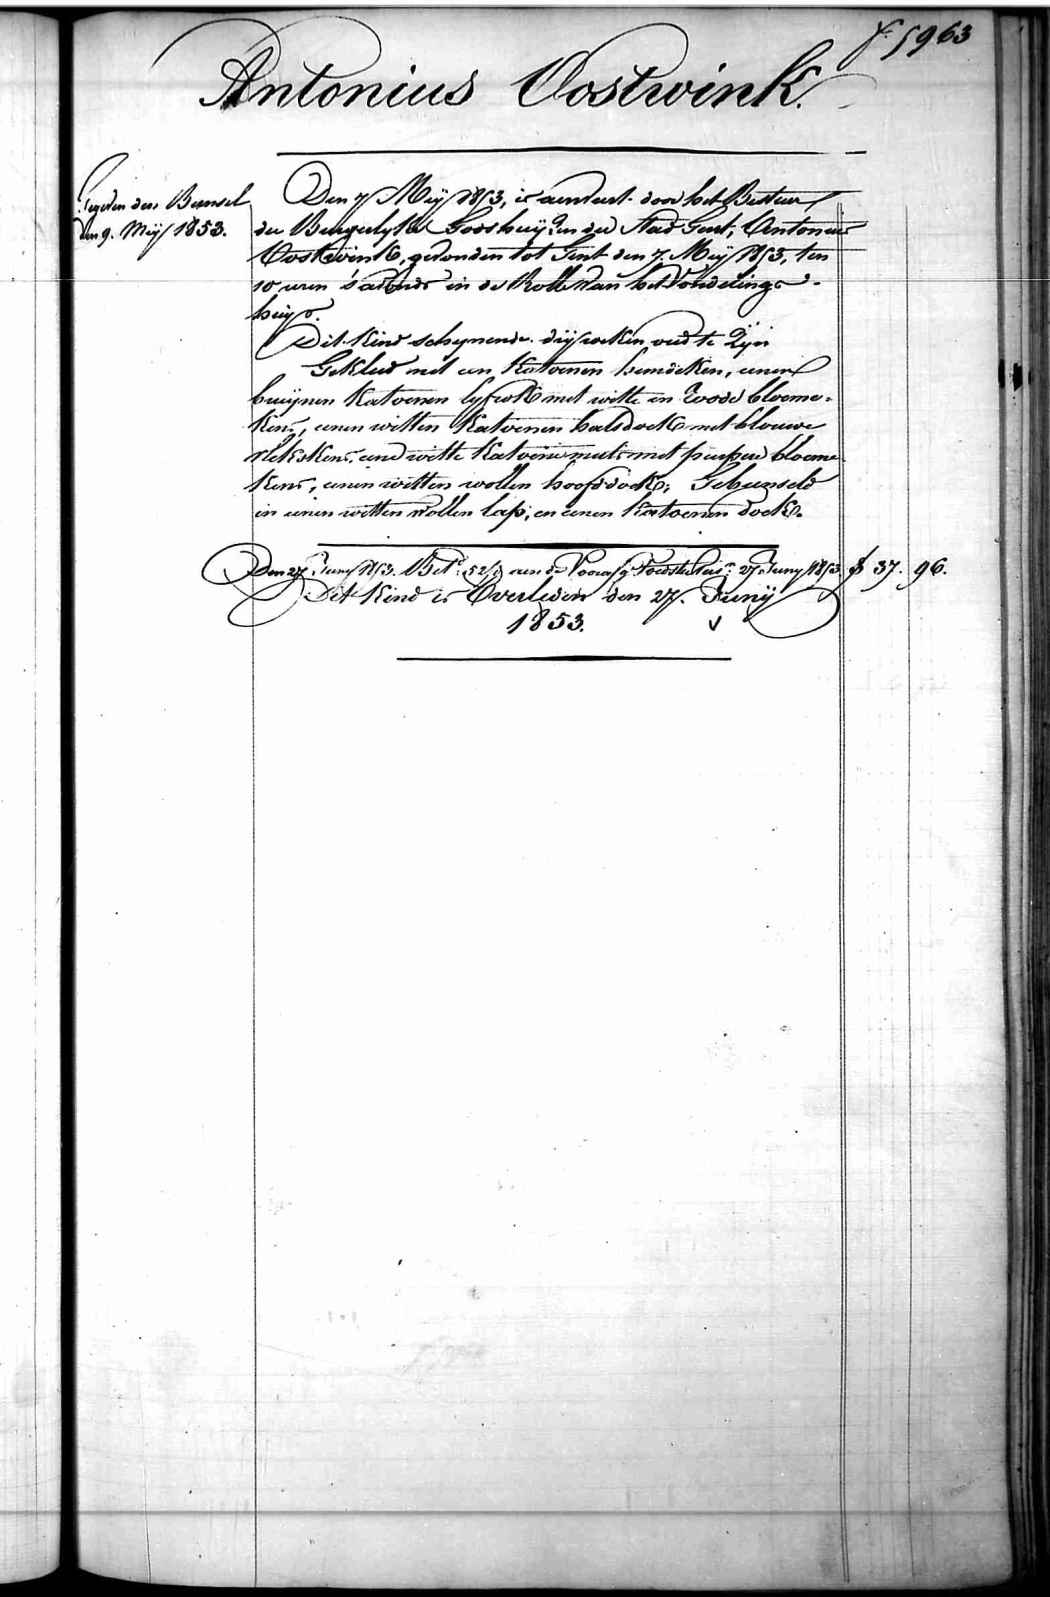 f. 5963
Antonius Oostwink.
Gegeven den Bunsel
den 9. Meÿ 1853.
Den 7 Meÿ 1853, is aenveert door het Bestuer
der Burgerlyke Godshuÿzen der Stad Gent, Antonius
Oostwink, gevonden tot Gent den 7. Meÿ 1853, ten
10 uren s'avonds in de Rolle van het Vondelings-
huÿs.
Dit Kind schynende drÿ weken oud te Zÿn
Gekleed met een Katoenen hemdeken, eenen
bruÿnen Katoenen lyfrok met witte en roode bloeme-
kens, eenen witten Katoenen halsdoek met blouwe
vlekskens, eene witte Katoene muts met purpere bloeme
kens, eenen witten wollen hoofddoek; Gebunseld
in eenen witten wollen lap, en eenen Katoenen doek.
Den 27. Juny 1853. Bet. 52/ aen de Voorsz. 27 Juny 1853. f 37. 96.
Dit Kind is Overleden den 27. Junÿ
1853.